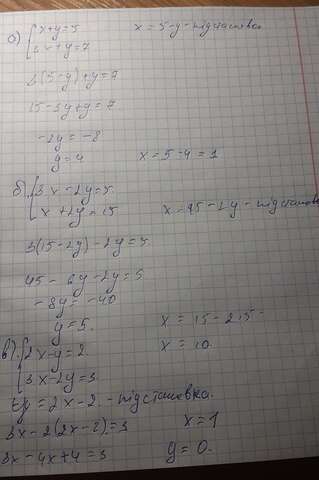 а) { x+y=5 x = 5-y - підстановка
3x+y=7
3(5-y)+y=7
15-3y+y=7
-2y=-8
y=4 x=5-4=1
б) { 3x-2y=5
x+2y=15 x=15-2y - підстановка
3(15-2y)-2y=5
45-6y-2y=5
-8y=-40
y=5. x=15-2·5
x=10.
в) { 2x-y=2
3x-2y=3
y=2x-2 - підстановка.
3x-2(2x-2)=3 x=1
3x-4x+4=3 y=0.